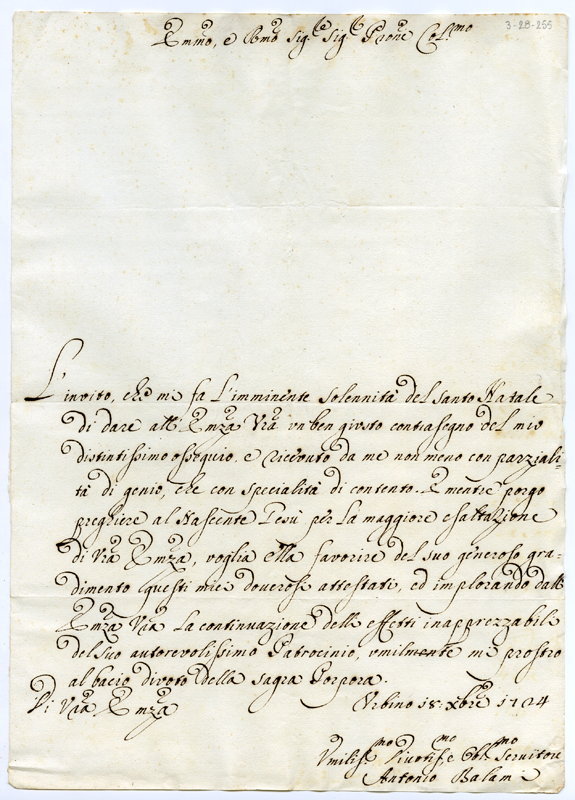 3-28-255
Emmo, e Rmo Sig.re Sig.r Prone Colmo
L'invito, che mi fa l'imminente solennità del santo Natale
di dare all' Emza Vra un ben giusto contrasegno del mio
distintissimo ossequio, è ricevuto da me non meno con parziali=
tà di genio, che con specialità di contento. E mentre porgo
preghiere al Nascente Gesù per la maggiore esaltazione
di Vra Emza, voglia ella favorire del suo generoso gra=
dimento questi miei doverosi attestati, ed implorando dall'
Emza Vra la continuazione delli effetti inapprezzabili
del suo autorevolissimo Patrocinio, umilmente mi prostro
al bacio divoto della sagra Porpora.
Di Vra Emza Urbino 18: Xbre 1724
Umiliss.mo Divotis.mo e Obl.mo Servitore
Antonio Balami